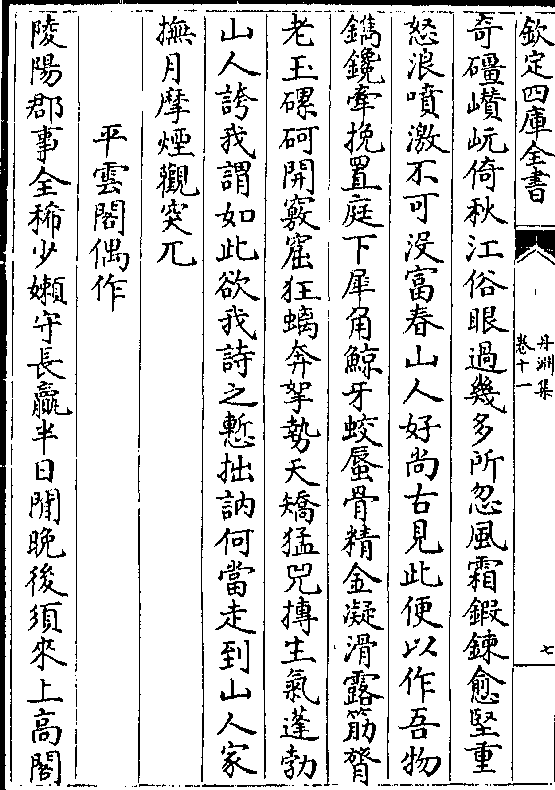 欽定四庫全書
丹淵集
卷十一
七
奇礓巑岏倚秋江俗眼過幾多所忽風霜鍜鍊愈堅重
怒浪噴激不可没富春山人好尚古見此便以作吾物
鐫鑱牽挽置庭下犀角鯨牙蛟蜃骨精金凝滑露筋膂
老玉磥砢開竅窟狂螭奔拏勢夭矯猛兕摶生氣蓬勃
山人誇我謂如此欲我詩之慙拙訥何當走到山人家
撫月摩煙觀突兀
平雲閣偶作
陵陽郡事全稀少嬾守長贏半日閒晚後須來上高閣